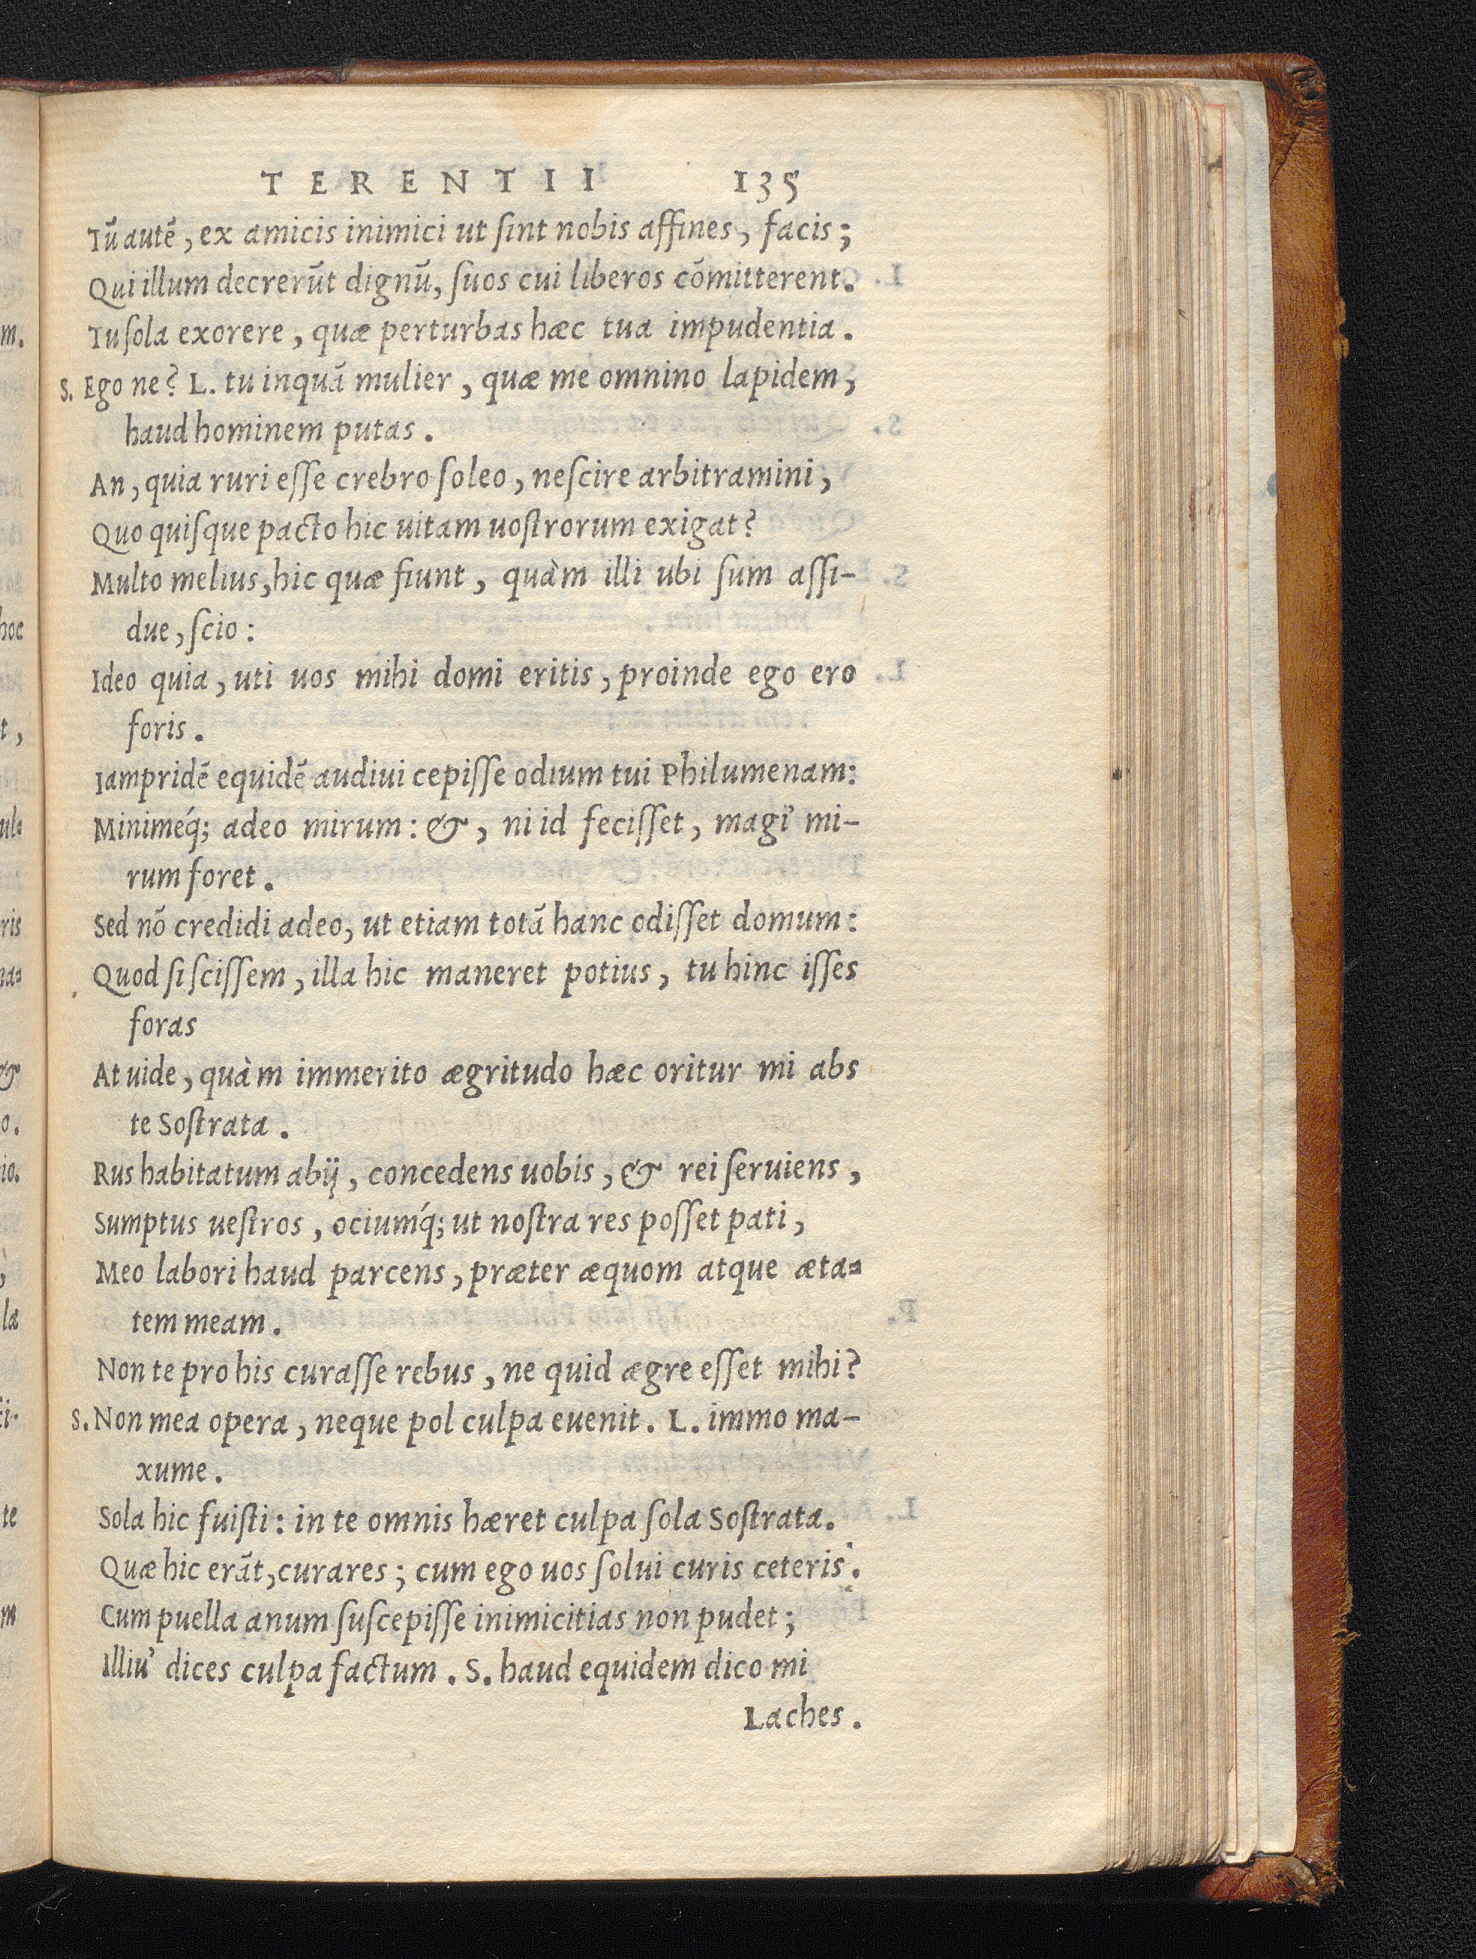 TERENTII 135
Tū autē, ex amicis inimici ut ſint nobis affines, facis;
Qui illum decrerūt dignū, ſuos cui liberos cōmitterent.
Tu ſola exorere, quæ perturbas hæc tua impudentia.
S. Ego ne? L. tu inquā mulier, quæ me omnino lapidem,
haud hominem putas.
An, quia ruri eſſe crebro ſoleo, neſcire arbitramini,
Quo quiſque pacto hic uitam uoſtrorum exigat?
Multo melius, hic quæ fiunt, quàm illi ubi ſum aſſi-
due, ſcio:
Ideo quia, uti uos mihi domi eritis, proinde ego ero
foris.
Iampridē equidē audiui cepiſſe odium tui Philumenam:
Minimeq́; adeo mirum: &, ni id feciſſet, magi' mi-
rum foret.
Sed nō credidi adeo, ut etiam totā hanc odiſſet domum:
Quod ſi ſciſſem, illa hic maneret potius, tu hinc iſſes
foras
At uide, quàm immerito ægritudo hæc oritur mi abs
te Soſtrata.
Rus habitatum abij, concedens uobis, & rei ſeruiens,
Sumptus ueſtros, ociumq́; ut noſtra res poſſet pati,
Meo labori haud parcens, præter æquom atque æta-
tem meam.
Non te pro his curaſſe rebus, ne quid ægre eſſet mihi?
S. Non mea opera, neque pol culpa euenit. L. immo ma-
xume.
Sola hic fuiſti: in te omnis hæret culpa ſola Soſtrata.
Quæ hic erāt, curares; cum ego uos ſolui curis ceteris.
Cum puella anum ſuſcepiſſe inimicitias non pudet;
Illiu' dices culpa factum. S. haud equidem dico mi
Laches.